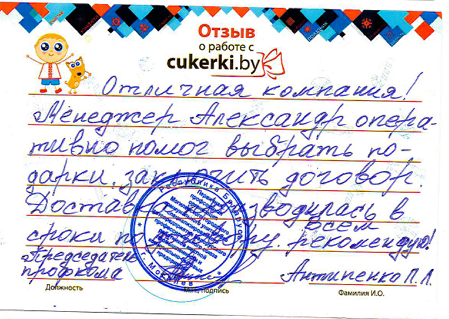 Отзыв
о работе с
cukerki.by
Отличная компания!
Менеджер Александр опера-
тивно помог выбрать по-
дарки, заключить договор.
Доставка производилась в
сроки по договору. Всем рекомендую!
Председатель
профкома
Антипенко П.Л.
Должность
подпись
Фамилия И.О.